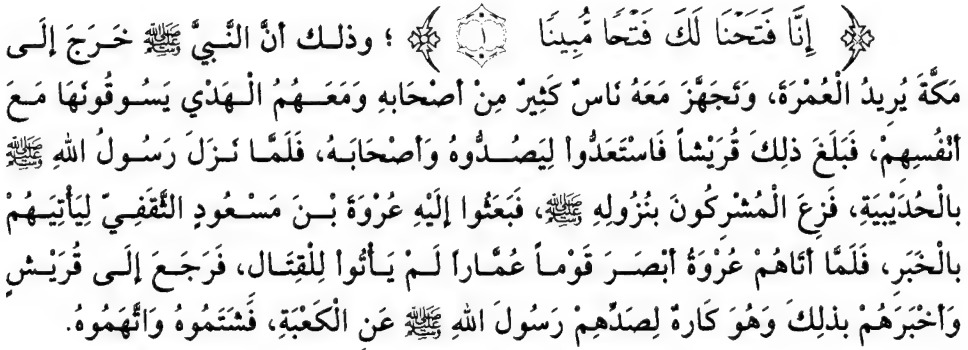 ﴿ إِنَّا فَتَحْنَا لَكَ فَتْحًا مُّبِينًا ۝١ ﴾ ؛ وذلـك أنَّ النَّبيَّ ﷺ خَـرَجَ إلَـى
مَكَّةَ يُرِيدُ الْعُمْرَةَ، وَتَجَهَّزَ مَعَهُ نَاسٌ كَثِيرٌ مِنْ أصْحَابهِ وَمَعَـهُمُ الْـهَدْي يَسُـوقُونَهَا مَـعَ
أنْفُسِهِمْ، فَبَلَغَ ذلِكَ قُرَيْشاً فَاسْتَعَدُّوا لِيَصُـدُّوهُ وَأصْحَابَـهُ، فَلَمَّا نَـزَلَ رَسُـولُ اللهِ ﷺ
بالْحُدَيْبيَةِ، فَزِعَ الْمُشْرِكُونَ بنُزُولِهِ ﷺ، فَبَعَثُوا إلَيْهِ عُرْوَةَ بْـنَ مَسْـعُودٍ الثَّقَفِـيّ لِيَأْتِيَـهُمْ
بالْخَبَرِ، فَلَمَّا أتَاهُمْ عُرْوَةُ أبْصَـرَ قَوْمـاً عُمَّاراً لَـمْ يَـأْتُوا لِلْقِتَـالِ، فَرَجَـعَ إلَـى قُرَيْـشٍ
وَأخْبَرَهُمْ بذلِكَ وَهُوَ كَارِهٌ لِصَدِّهِمْ رَسُولَ اللهِ ﷺ عَنِ الْكَعْبَةِ، فَشَتَمُوهُ وَاتَّهَمُوهُ.